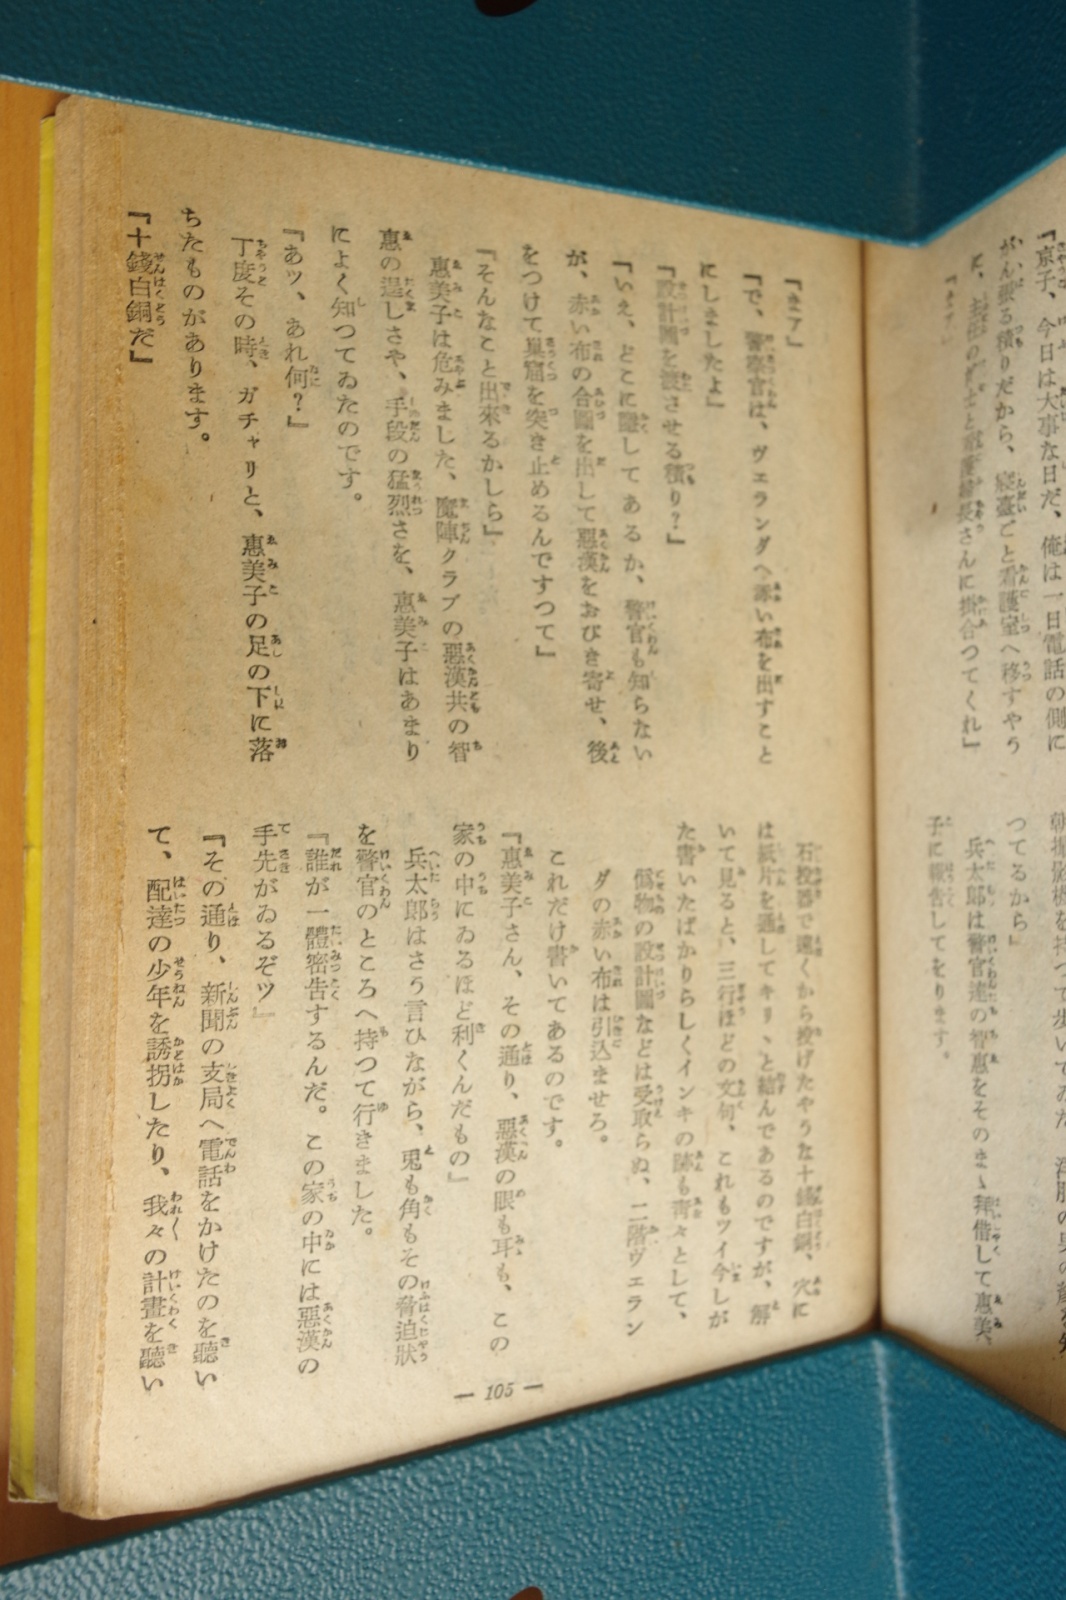 『京子、今日は大事な日だ、俺は一日電話の側に
がん張る積りだから、寝臺ごと看護室へ移すやう
さんに掛合つてくれ』
つてるから」
兵太郎は警官達の智惠をそのまゝ拜借して惠美
子に報告してをります。
『まア』
『で、警察官は、ヴェランダへ赤い布を出すこと
にしましたよ』
『設計圖を渡させる積り？』
『いえ、どこに隱してあるか、警官も知らない
が、赤い布の合圖を出して惡漢をおびき寄せ、後
をつけて巢窟を突き止めるんですつて』
『そんなこと出來るかしら』
惠美子は危みました、魔陣クラブの惡漢共の智
惠の逞しさや、手段の猛烈さを、惠美子はあまり
によく知つてゐたのです。
『あッ、あれ何？』
丁度その時、ガチャリと、惠美子の足の下に落
ちたものがあります。
『十錢白銅だ』
石投器で遠くから投げたやうな十錢白銅、穴に
は紙片を通してキリヽと結んであるのですが、解
いて見ると、三行ほどの文句、これもツイ今しが
た書いたばかりらしくインキの跡も靑々として、
僞物の設計圖などは受取らぬ、二階ヴェラン
ダの赤い布は引込ませろ。
これだけ書いてあるのです。
『惠美子さん、その通り、惡漢の眼も耳も、この
家の中にゐるほど利くんだもの』
兵太郎はさう言ひながら、兎も角もその脅迫狀
を警官のところへ持つて行きました。
『誰が一體密告するんだ。この家の中には惡漢の
手先がゐるぞッ』
『その通り、新聞の支局へ電話をかけたのを聽い
て、配達の少年を誘拐したり、我々の計畫を聽い
— 105 —